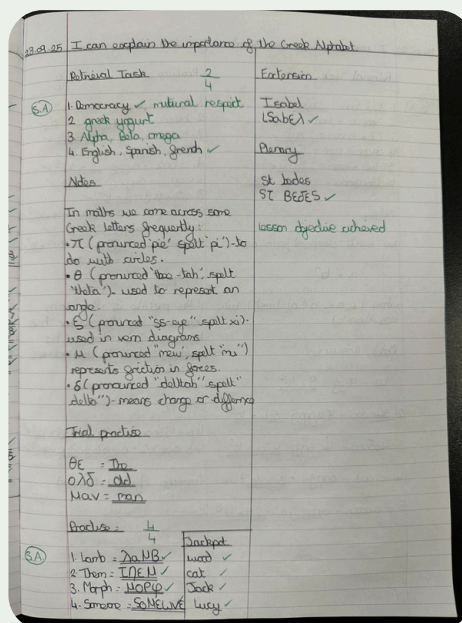 23.09.25 I can explain the importance of the Greek Alphabet
Retrieval Task 2/4
S.A
1. Democracy ✓ mutural respect
2 greek yogurt
3 Alpha, Beta, omega
4. English, Spanish, french ✓
Notes
In maths we come across some
Greek letters frequently:
• π (pronunced 'pie' spelt 'pi') - to
do with circles.
• θ (pronunced
spelt
'theta') - used to represent an
angle.
• ξ (pronunced "ss-eye" spelt xi) -
used in venn diagrams
• μ (pronunced "new", spelt "mu")
represents friction in forces.
• δ (pronounced "deltah" spelt"
delta") - means change or difference
Trial practise
θε = The
ολδ = old
Μαν = man
Practise: 4/4
S.A
1. Lamb =
✓
2 Them =
✓
3. Morph =
✓
4. Someone =
Jackpot
wood ✓
cat ✓
Jack ✓
Lucy ✓
Extension
Isabel
ISαbEλ ✓
Plenary
St bedes
ST BEδES ✓
lesson objective achieved